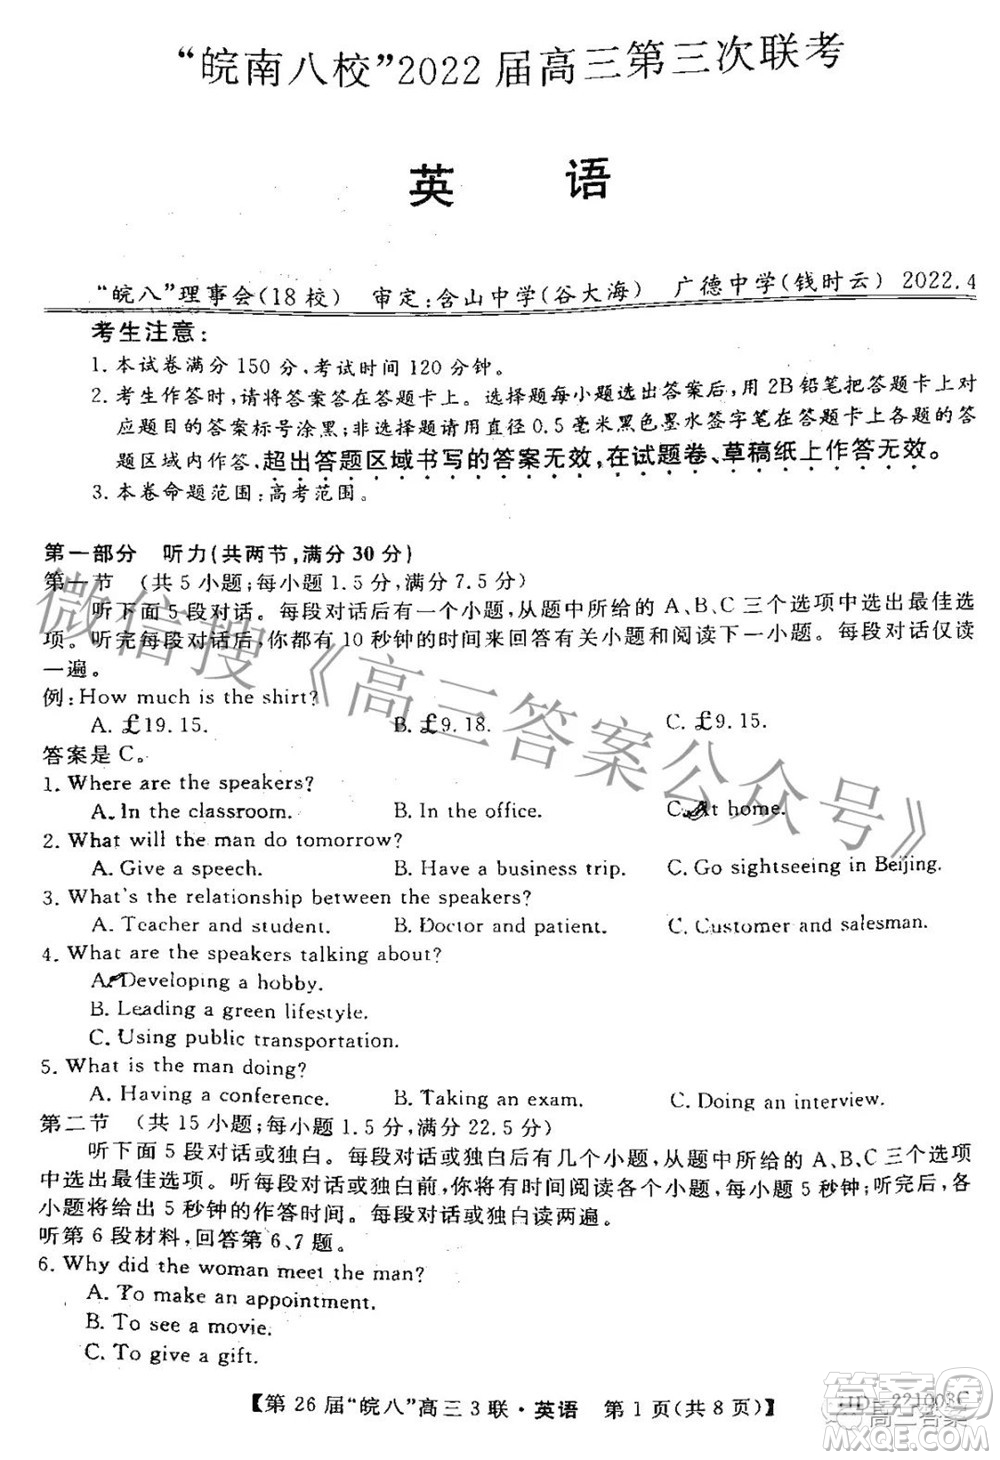 “皖南八校”2022届高三第三次联考
英 语
“皖八”理事会(18校) 审定:含山中学(谷大海) 广德中学(钱时云) 2022.4
考生注意:
1. 本试卷满分150分,考试时间120分钟。
2. 考生作答时,请将答案答在答题卡上。选择题每小题选出答案后,用2B铅笔把答题卡上对
应题目的答案标号涂黑;非选择题请用直径0.5毫米黑色墨水签字笔在答题卡上各题的答
题区域内作答,超出答题区域书写的答案无效,在试题卷、草稿纸上作答无效。
3. 本卷命题范围:高考范围。
第一部分 听力(共两节,满分30分)
第一节 (共5小题;每小题1.5分,满分7.5分)
听下面5段对话。每段对话后有一个小题,从题中所给的A、B、C三个选项中选出最佳选
项。听完每段对话后,你都有10秒钟的时间来回答有关小题和阅读下一小题。每段对话仅读
一遍。
例:How much is the shirt?
A. £19.15. B. £9.18. C. £9.15.
答案是C。
1. Where are the speakers?
A. In the classroom. B. In the office. C. At home.
2. What will the man do tomorrow?
A. Give a speech. B. Have a business trip. C. Go sightseeing in Beijing.
3. What's the relationship between the speakers?
A. Teacher and student. B. Doctor and patient. C. Customer and salesman.
4. What are the speakers talking about?
A. Developing a hobby.
B. Leading a green lifestyle.
C. Using public transportation.
5. What is the man doing?
A. Having a conference. B. Taking an exam. C. Doing an interview.
第二节 (共15小题;每小题1.5分,满分22.5分)
听下面5段对话或独白。每段对话或独白后有几个小题,从题中所给的A、B、C三个选项
中选出最佳选项。听每段对话或独白前,你将有时间阅读各个小题,每小题5秒钟;听完后,各
小题将给出5秒钟的作答时间。每段对话或独白读两遍。
听第6段材料,回答第6、7题。
6. Why did the woman meet the man?
A. To make an appointment.
B. To see a movie.
C. To give a gift.
【第26届“皖八”高三3联·英语 第1页(共8页)】 HD—221003C
微信搜《高三答案公众号》
高三答案
MXQE.COM